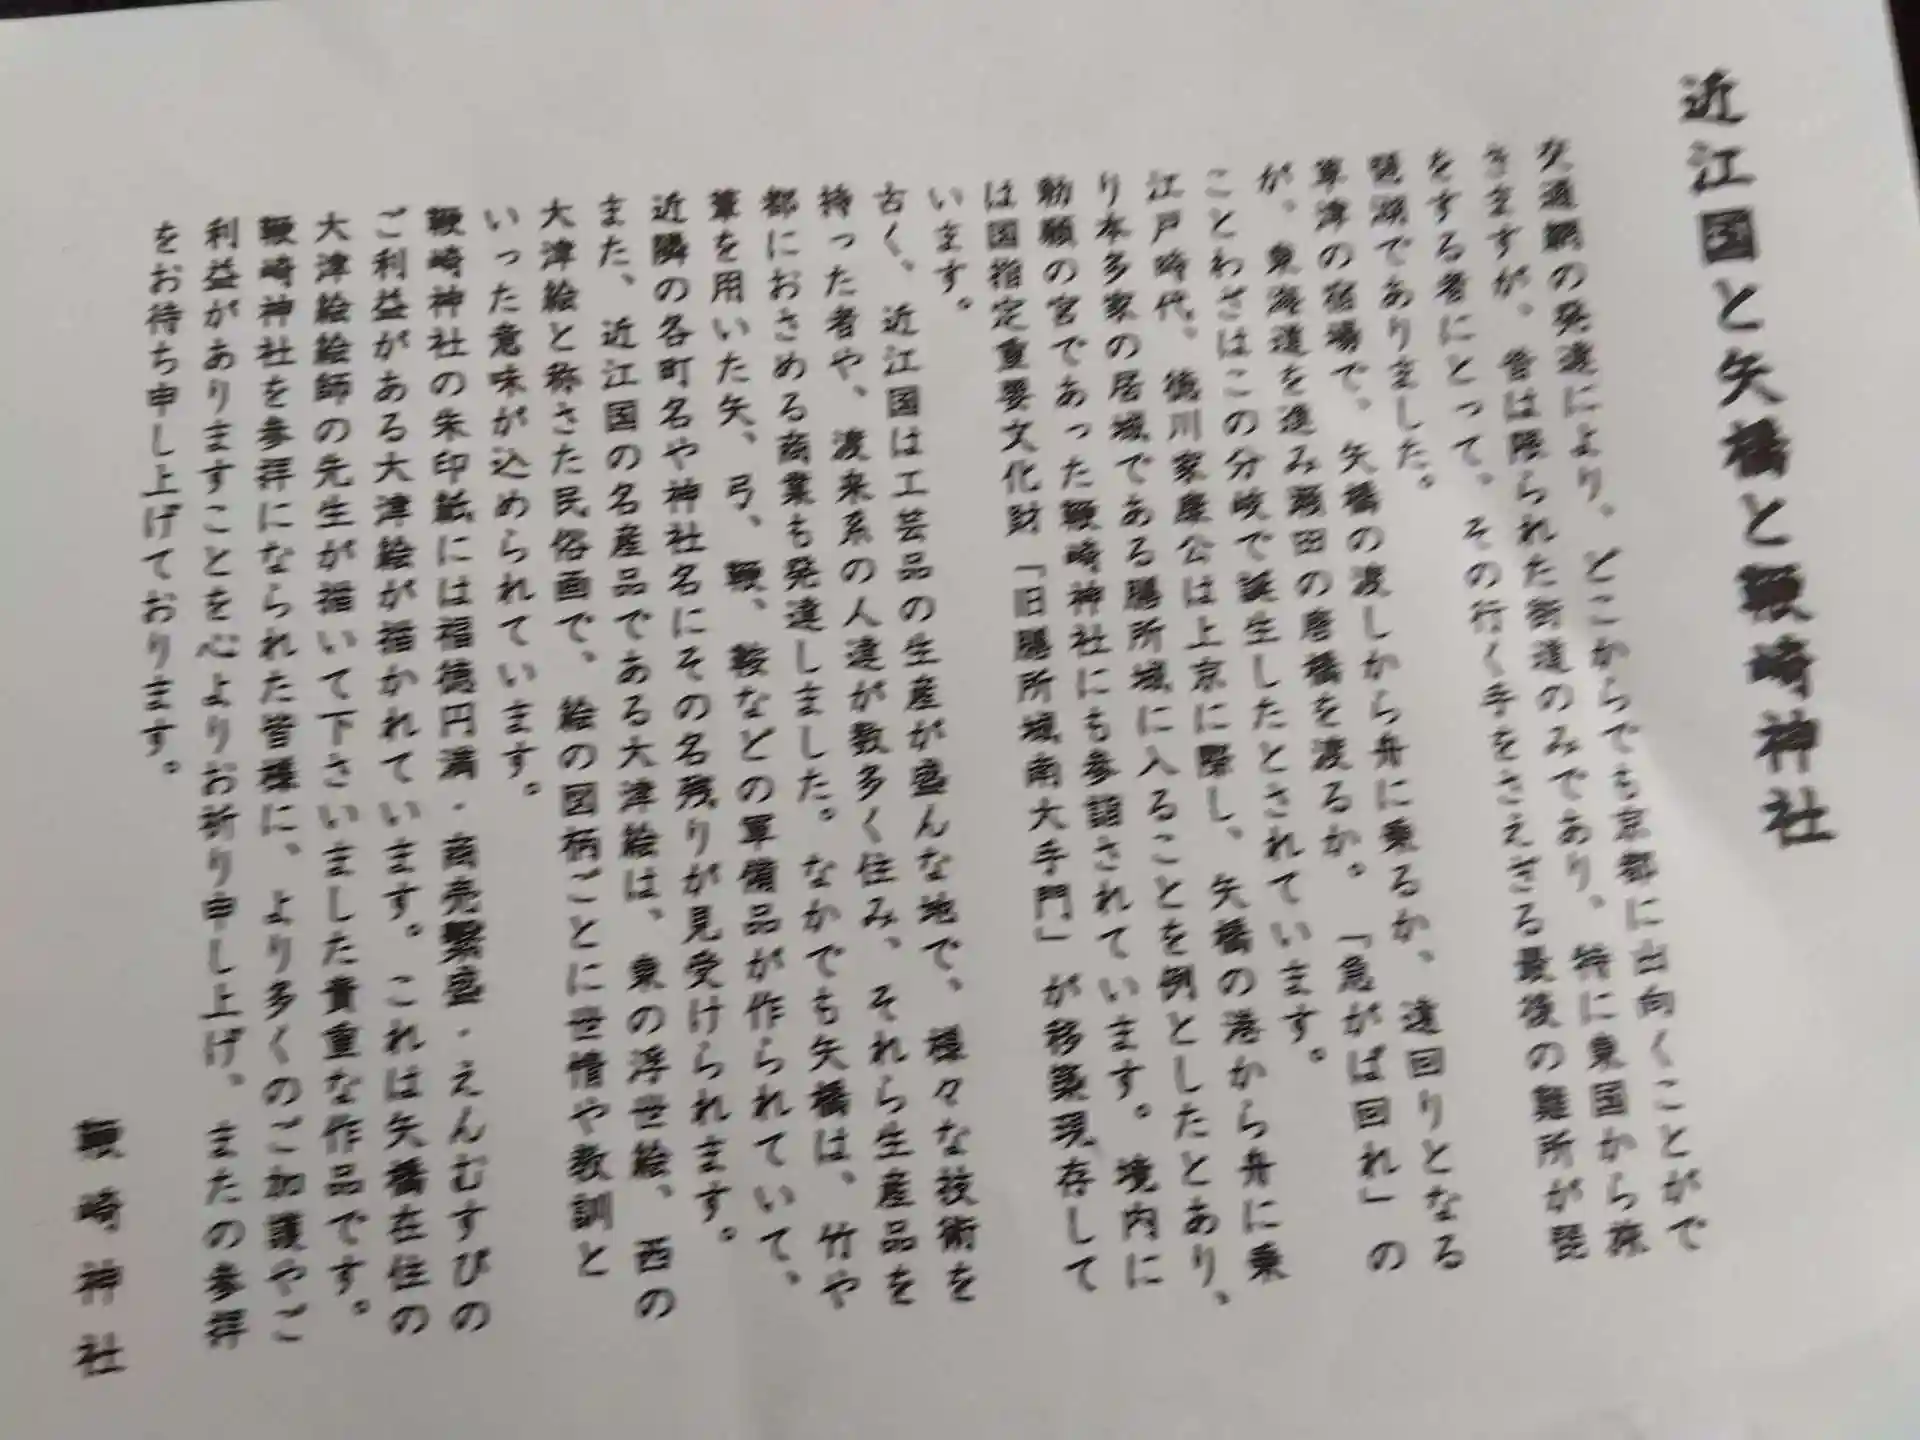 近江国と矢橋と鞭崎神社
交通網の発達により、どこからでも京都に出向くことがで
きますが、昔は限られた街道のみであり、特に東国から旅
をする者にとって、その行く手をさえぎる最後の難所が琵
琶湖でありました。
草津の宿場で、矢橋の渡しから舟に乗るか、遠回りとなる
が、東海道を進み瀬田の唐橋を渡るか。「急がば回れ」の
ことわざはこの分岐で誕生したとされています。
江戸時代、徳川家康公は上京に際し、矢橋の港から舟に乗
り本多家の居城である膳所城に入ることを例としたとあり、
勅願の宮であった鞭崎神社にも参詣されています。境内に
は国指定重要文化財「旧膳所城南大手門」が移築現存して
います。
古く、近江国は工芸品の生産が盛んな地で、様々な技術を
持った者や、渡来系の人達が数多く住み、それら生産品を
都におさめる商業も発達しました。なかでも矢橋は、竹や
葦を用いた矢、弓、鞭、鞍などの軍備品が作られていて、
近隣の各町名や神社名にその名残りが見受けられます。
また、近江国の名産品である大津絵は、東の浮世絵、西の
大津絵と称された民俗画で、絵の図柄ごとに世情や教訓と
いった意味が込められています。
鞭崎神社の朱印紙には福徳円満・商売繫盛・えんむすびの
ご利益がある大津絵が描かれています。これは矢橋在住の
大津絵絵師の先生が描いて下さいました貴重な作品です。
鞭崎神社を参拝になられた皆様に、より多くのご加護やご
利益がありますことを心よりお祈り申し上げ、またの参拝
をお待ち申し上げております。
鞭崎神社